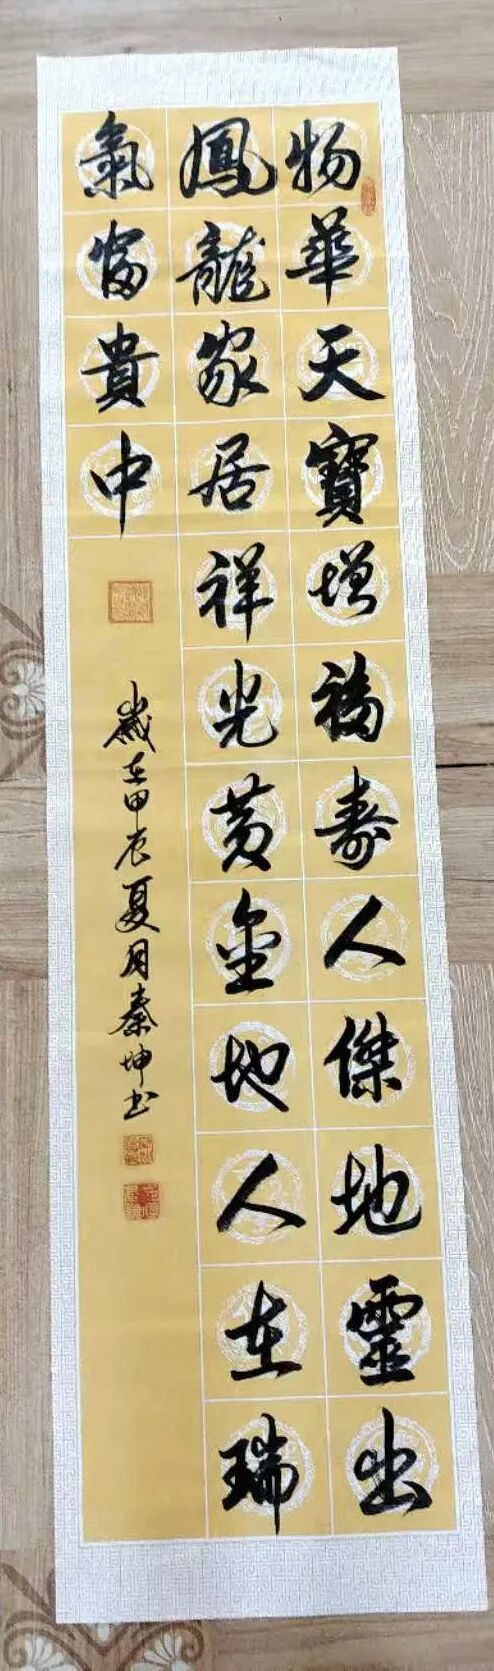 物華天寶增福壽人傑地靈出
鳳龍家居祥光黃金地人在瑞
氣富貴中
歲在甲辰夏月秦坤书